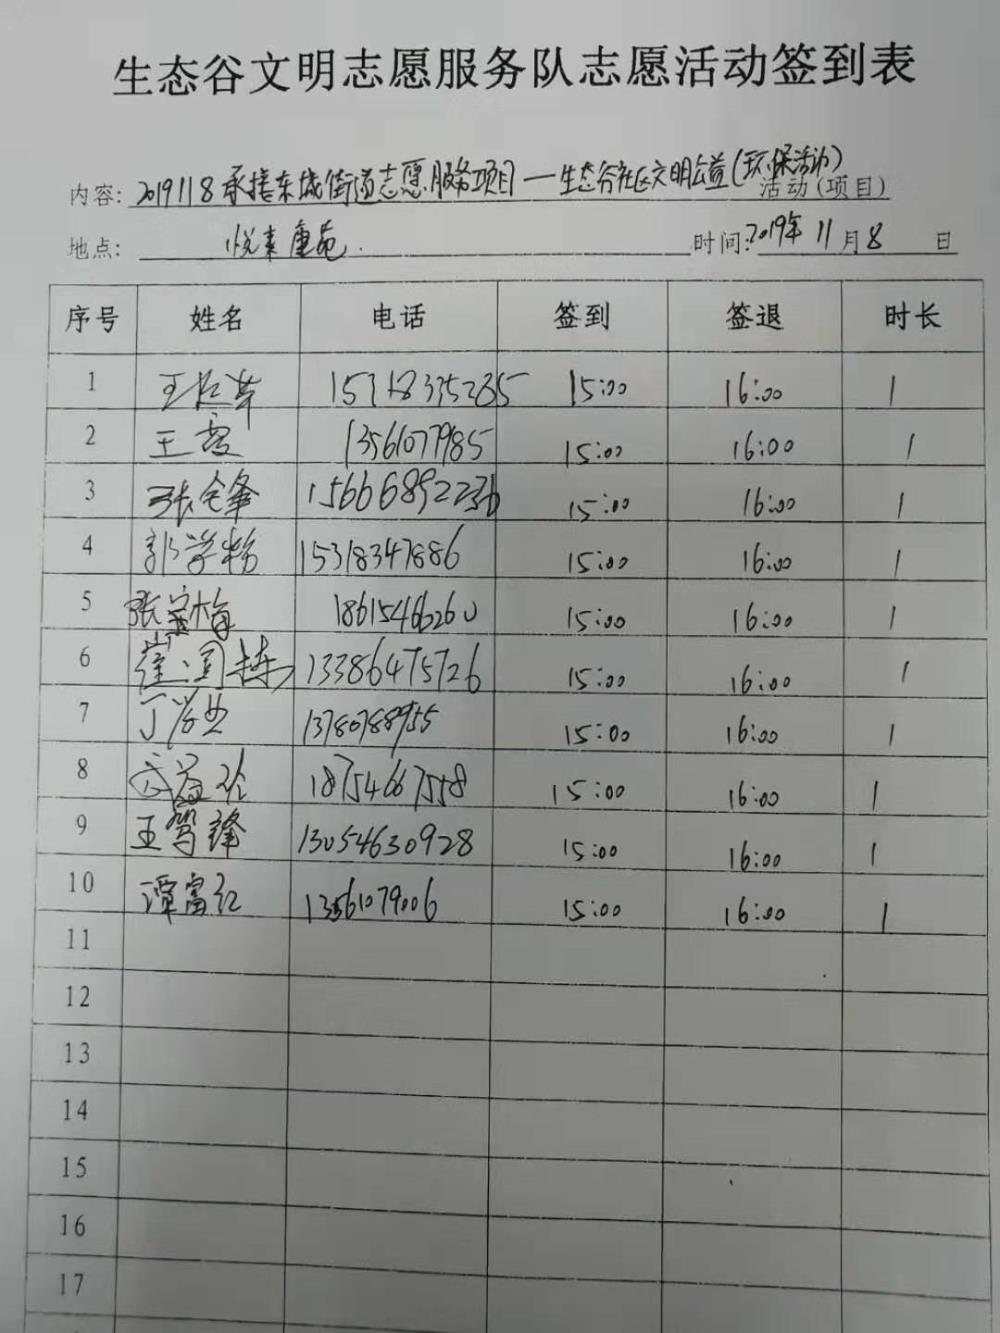 生态谷文明志愿服务队志愿活动签到表
内容: 2019118承接东城街道志愿服务项目一生态谷社区文明公益(环保活动)活动(项目)
地点: 悦来康苑. 时间:2019年11月8日
序号 姓名 电话 签到 签退 时长
1 王 15318335285 15:00 16:00 1
2 王霞 13561077985 15:00 16:00 1
3 张全锋 15666892236 15:00 16:00 1
4 郭学粉 15318347886 15:00 16:00 1
5 张宝梅 18615466260 15:00 16:00 1
6 崔国栋 13386475726 15:00 16:00 1
7 丁 13780788955 15:00 16:00 1
8 18754667558 15:00 16:00 1
9 王笃锋 13054630928 15:00 16:00 1
10 谭富红 13561079006 15:00 16:00 1
11
12
13
14
15
16
17